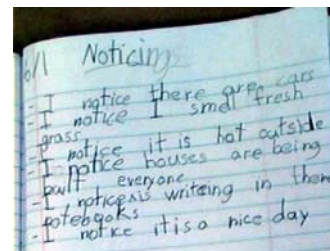 0/1 Noticing
- I notice there are cars
- I notice I smell fresh
grass
- I notice it is hot outside
- I notice houses are being
built everyone
- I notice is writeing in there
notebooks
- I notice it is a nice day